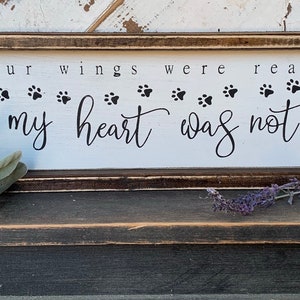 ur wings were rea
my heart was not